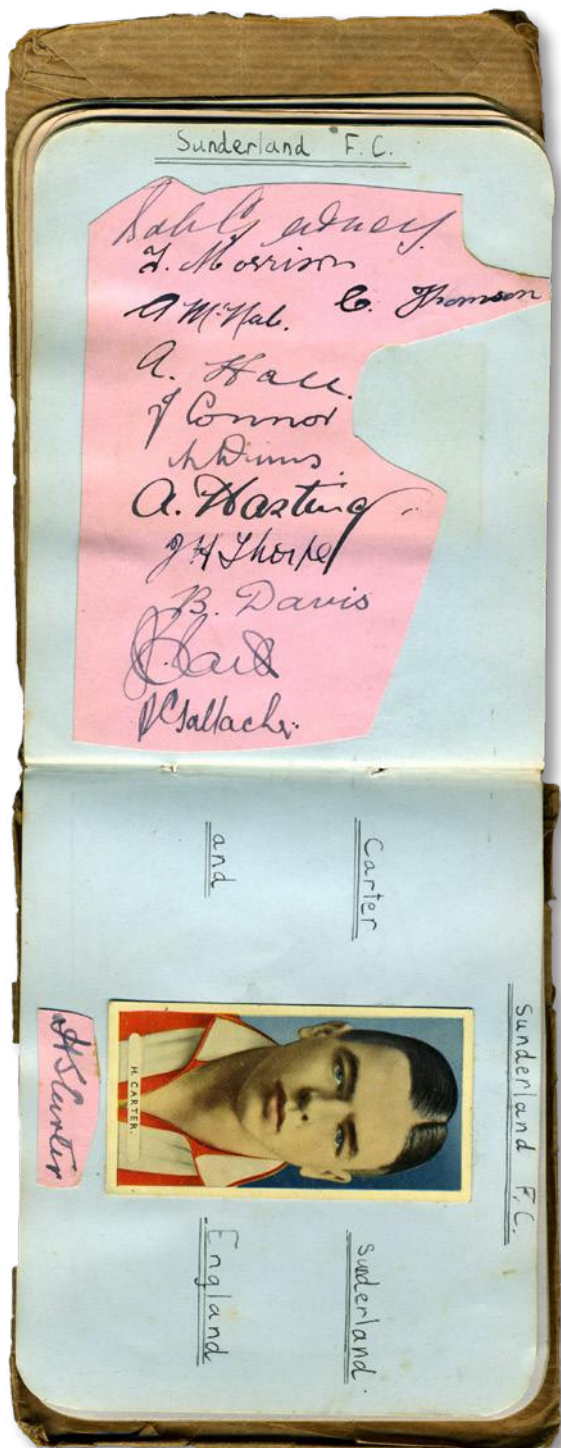 Sunderland F.C.
Bob Gurney
T. Morrison
A McNab. C. Thomson
A. Hall.
J Connor
A. Hastings
J H Thorpe
B. Davis
P Gallacher
Sunderland F.C.
Carter Sunderland.
and England
H. CARTER.
H S Carter